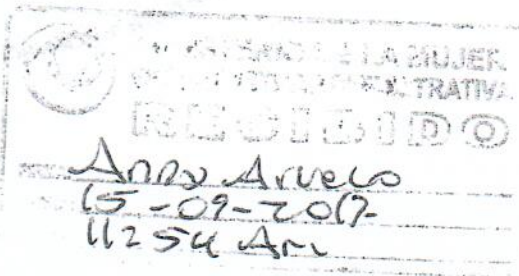 LA MUJER
RECIBIDO
Anny Arvelo
15-09-2017-
11:54 Am